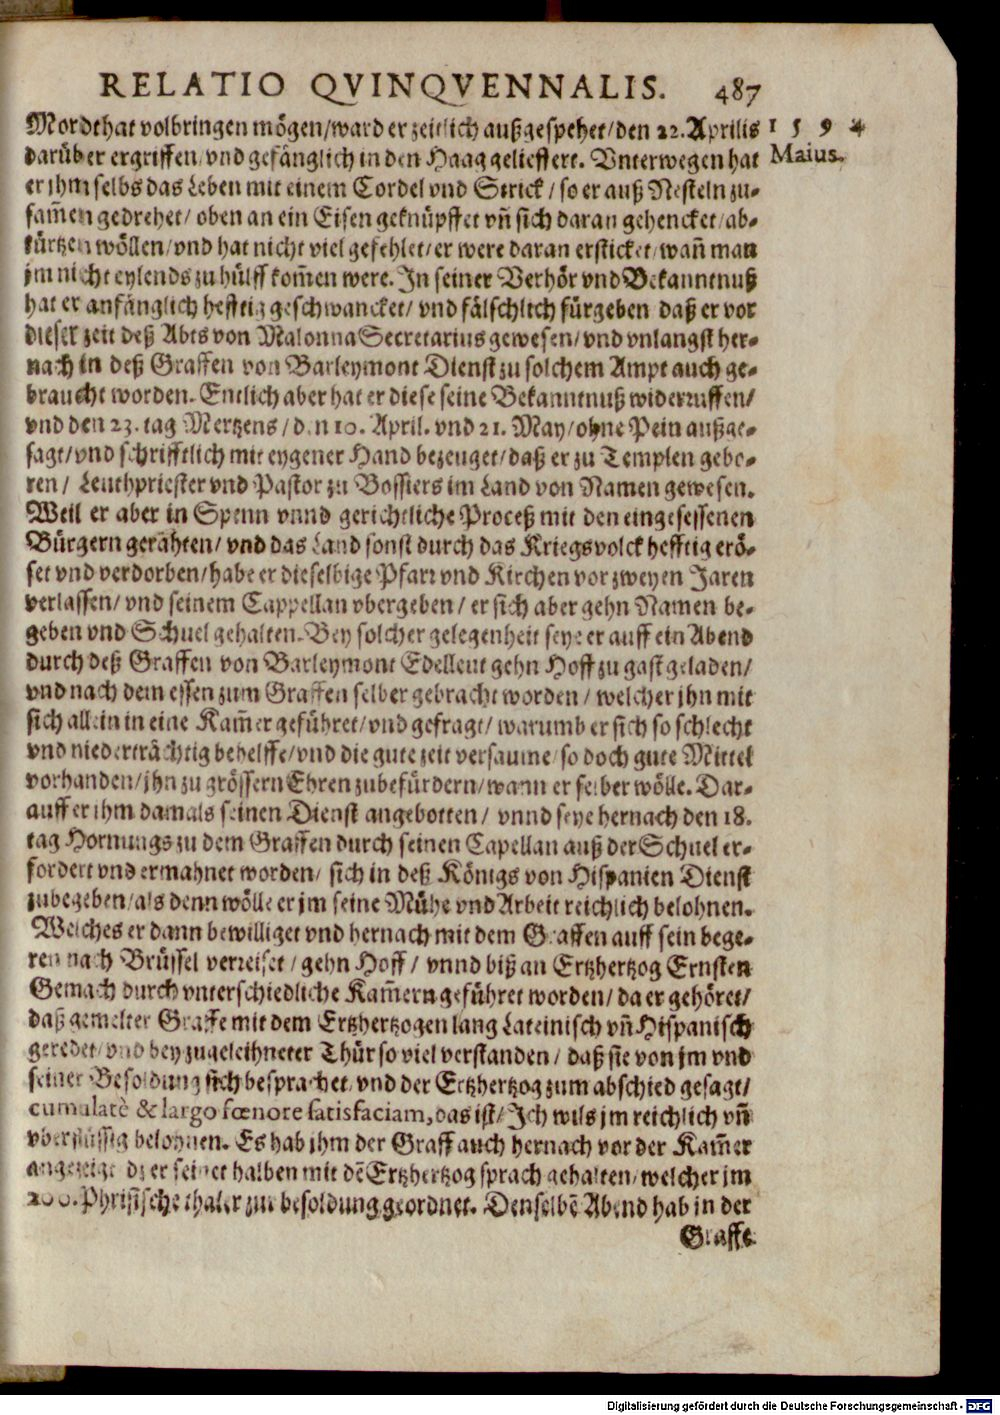 RELATIO QVINQVENNALIS. 487
Mordthat volbringen mögen/ward er zeitlich außgespehet/den 22. Aprilis 1594
darüber ergriffen/vnd gefänglich in den Haag gelieffert. Vnterwegen hat Maius.
er jhm selbs das Leben mit einem Cordel vnd Strick/so er auß Nesteln zu-
sam̃en gedrehet/oben an ein Eisen geknüpffet vñ sich daran gehencket/ab-
kürtzen wöllen/vnd hat nicht viel gefehlet/er were daran ersticket/wañ man
jm nicht eylends zu hülff kom̃en were. In seiner Verhör vnd Bekanntnuß
hat er anfänglich hefftig geschwancket/vnd fälschlich fürgeben daß er vor
dieser zeit deß Abts von Malonna Secretarius gewesen/vnd vnlangst her-
nach in deß Graffen von Barleymont Dienst zu solchem Ampt auch ge-
braucht worden. Entlich aber hat er diese seine Bekanntnuß widerruffen/
vnd den 23. tag Mertzens/den 10. April. vnd 21. May/ohne Pein außge-
sagt/vnd schrifftlich mit eygener Hand bezeuget/daß er zu Templen gebo-
ren/Leuthpriester vnd Pastor zu Bossiers im Land von Namen gewesen.
Weil er aber in Spenn vnnd gerichtliche Proceß mit den eingesessenen
Bürgern gerahten/vnd das Land sonst durch das Kriegsvolck hefftig erö-
set vnd verdorben/habe er dieselbige Pfarr vnd Kirchen vor zweyen Jaren
verlassen/vnd seinem Cappellan vbergeben/er sich aber gehn Namen be-
geben vnd Schuel gehalten. Bey solcher gelegenheit seye er auff ein Abend
durch deß Graffen von Barleymont Edelleut gehn Hoff zu gast geladen/
vnd nach dem essen zum Graffen selber gebracht worden/welcher jhn mit
sich allein in eine Kam̃er geführet/vnd gefragt/warumb er sich so schlecht
vnd niederträchtig behelffe/vnd die gute zeit versaume/so doch gute Mittel
vorhanden/jhn zu grössern Ehren zubefürdern/wann er selber wölle. Dar-
auff er jhm damals seinen Dienst angebotten/vnnd seye hernach den 18.
tag Hornungs zu dem Graffen durch seinen Capellan auß der Schuel er-
fordert vnd ermahnet worden/sich in deß Königs von Hispanien Dienst
zubegeben/als denn wölle er jm seine Mühe vnd Arbeit reichlich belohnen.
Welches er dann bewilliget vnd hernach mit dem Graffen auff sein bege-
ren nach Brüssel verreiset/gehn Hoff/vnnd biß an Ertzhertzog Ernsten
Gemach durch vnterschiedliche Kam̃ern geführet worden/da er gehöret/
daß gemelter Graffe mit dem Ertzhertzogen lang Lateinisch vñ Hispanisch
geredet/vnd bey zugeleihneter Thür so viel verstanden/daß sie von jm vnd
seiner Besoldung sich besprachet/vnd der Ertzhertzog zum abschied gesagt/
cumulatè & largo fœnore satisfaciam, das ist/Ich wils jm reichlich vñ
vberflüssig belohnen. Es hab jhm der Graff auch hernach vor der Kam̃er
angezeigt dz er seinet halben mit dẽ Ertzhertzog sprach gehalten/welcher jm
200. Phrisische thaler zur besoldung geordnet. Denselbẽ Abend hab in der
Graffe
Digitalisierung gefördert durch die Deutsche Forschungsgemeinschaft - DFG